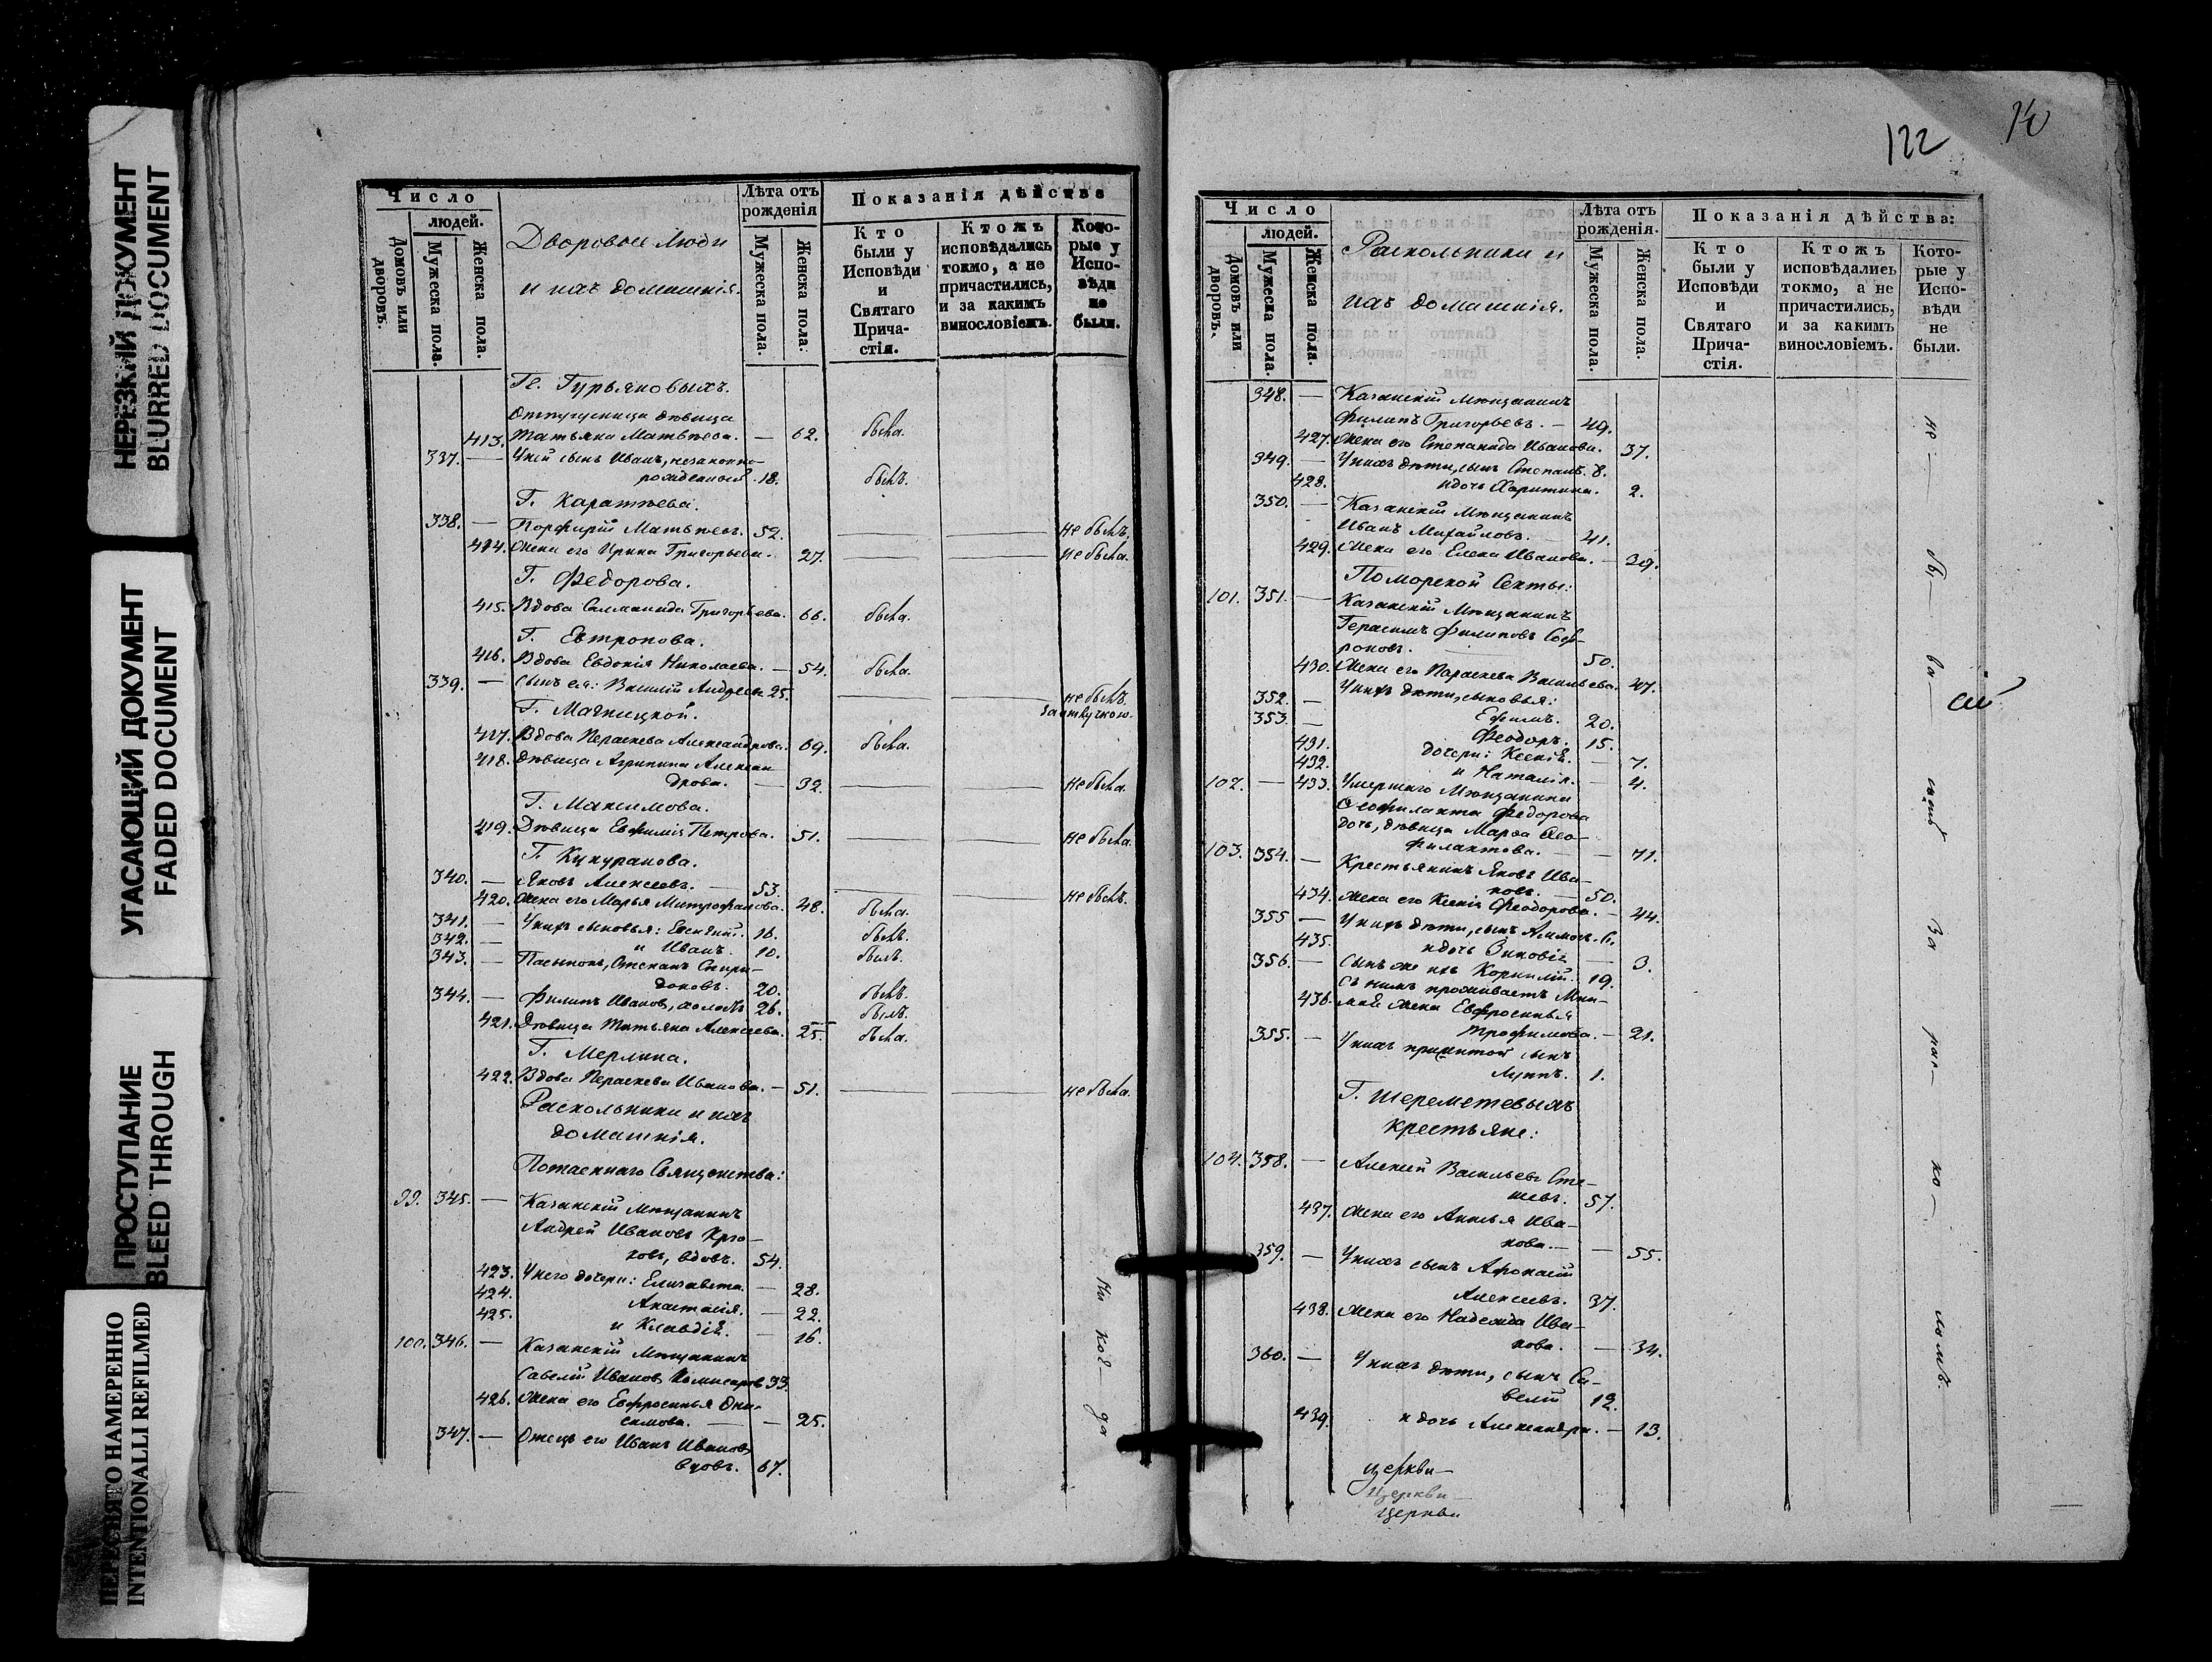 НЕРЕЗКИЙ ДОКУМЕНТ
BLURRED DOCUMENT
УГАСАЮЩИЙ ДОКУМЕНТ
FADED DOCUMENT
ПРОСТУПАНИЕ
BLEED THROUGH
ПЕРЕСНЯТО НАМЕРЕННО
INTENTIONALLI REFILMED
Число
людей.
Домовъ или дворовъ.
Мужеска пола.
Женска пола.
Дворовые люди
и ихъ домашнія.
Лѣта отъ рожденія
Мужеска пола.
Женска пола.
Показанія дѣйства
Кто были у Исповѣди и Святаго Причастія.
Ктожъ исповѣдались токмо, а не причастились, и за какимъ винословіемъ.
Которые у Исповѣди не были.
Гг. Гурьяновыхъ.
Отпущеница дѣвица
413. Татьяна Матвѣева. — 62. была.
337. — У ней сынъ Иванъ, незаконно-
рожденный. 18. былъ.
Г. Каратѣева.
338. — Порфирій Матвѣевъ. 52. не былъ.
414. Жена его Ирина Григорьева. 27. не была.
Г. Федорова.
415. Вдова Саламанида Григорьева. 66. была.
Г. Евтропова.
416. Вдова Евдокія Николаева. — 54. была.
339. — Сынъ ея: Василій Андреевъ 25. не былъ
за отлучкою.
Г. Магницкой.
417. Вдова Параскева Александрова. 69. была.
418. Дѣвица Агрипина Алексан-
дрова. — 32. не была.
Г. Максимова.
419. Дѣвица Евфимія Петрова. 51. не была.
Г. Кукуранова.
340. — Яковъ Алексеевъ. — 53. не былъ.
420. Жена его Марья Митрофанова. 48. была.
341. — У нихъ сыновья: Евгеній. 16. былъ.
342. — и Иванъ. 10. былъ.
343. — Пасынокъ, Степанъ Спири-
доновъ. 20. былъ.
344. — Филипъ Ивановъ, холостъ 26. былъ.
421. Дѣвица Татьяна Алексеева. 25. была.
Г. Мерлина.
422. Вдова Параскева Иванова. — 51. не была.
Раскольники и ихъ
домашнія.
Потаеннаго Священства:
99. 345. — Казанскій Мѣщанинъ
Андрей Ивановъ Крю-
ковъ, вдовъ. 54.
423. У него дочери: Елизавета. — 28.
424. Анастасія. — 22.
425. и Клавдія. — 16.
100. 346. — Казанскій Мѣщанинъ
Савелій Ивановъ Комисаровъ 33.
426. Жена его Евфросинья Они-
симова. — — 25.
347. — Отецъ его Иванъ Ивановъ
вдовъ. 67.
Ни ког-да
122
Число
людей.
Домовъ или дворовъ.
Мужеска пола.
Женска пола.
Раскольники и
ихъ домашнія.
Лѣта отъ рожденія.
Мужеска пола.
Женска пола.
Показанія дѣйства:
Кто были у Исповѣди и Святаго Причастія.
Ктожъ исповѣдались токмо, а не причастились, и за какимъ винословіемъ.
Которые у Исповѣди не были.
348. — Казанскій Мѣщанинъ
Филипъ Григорьевъ. — 49.
427. Жена его Степанида Иванова. 37.
349. — У нихъ дѣти, сынъ Степанъ. 8.
428. и дочь Харитина. 2.
350. — Казанскій Мѣщанинъ
Иванъ Михайловъ. 41.
429. Жена его Елена Иванова. — 39.
Поморской Секты:
101. 351. — Казанскій Мѣщанинъ
Герасимъ Филиповъ Соф-
роновъ. 50.
430. Жена его Параскева Васильева. 47.
У нихъ дѣти, сыновья:
352. — Ефимъ. 20.
353. — Феодоръ. 15.
431. дочери: Ксенія. — 7.
432. и Наталія. — 4.
102. — 433. Умершаго Мѣщанина
Ѳеофилакта Федорова
дочь, дѣвица Марѳа Ѳео-
филактова. — — 71.
103. 354. — Крестьянинъ Яковъ Ива-
новъ. — 50.
434. Жена его Ксенія Феодорова. — 44.
355 — У нихъ дѣти, сынъ 6.
435. и дочь Зиновія — 3.
356. — Сынъ же ихъ Корнилій. 19.
Съ нимъ проживаетъ Мни-
436. мая жена Евфросинья
Трофимова. — 21.
355. — У нихъ прижитой сынъ
Луппъ. 1.
Г. Шереметевыхъ
крестьяне:
104. 358. — Алексей Васильевъ Сте-
шевъ. 57.
437. Жена его Анисья Ива-
нова. — — 55.
359. — У нихъ сынъ Афонасій
Алексеевъ. 37.
438. Жена его Надежда Ива-
нова. — 34.
360. — У нихъ дѣти, сынъ Са-
велій 12.
439. и дочь Александра. — 13.
не — бы — ва — за рас — ко —
церкви —
Церкви —
Церкви